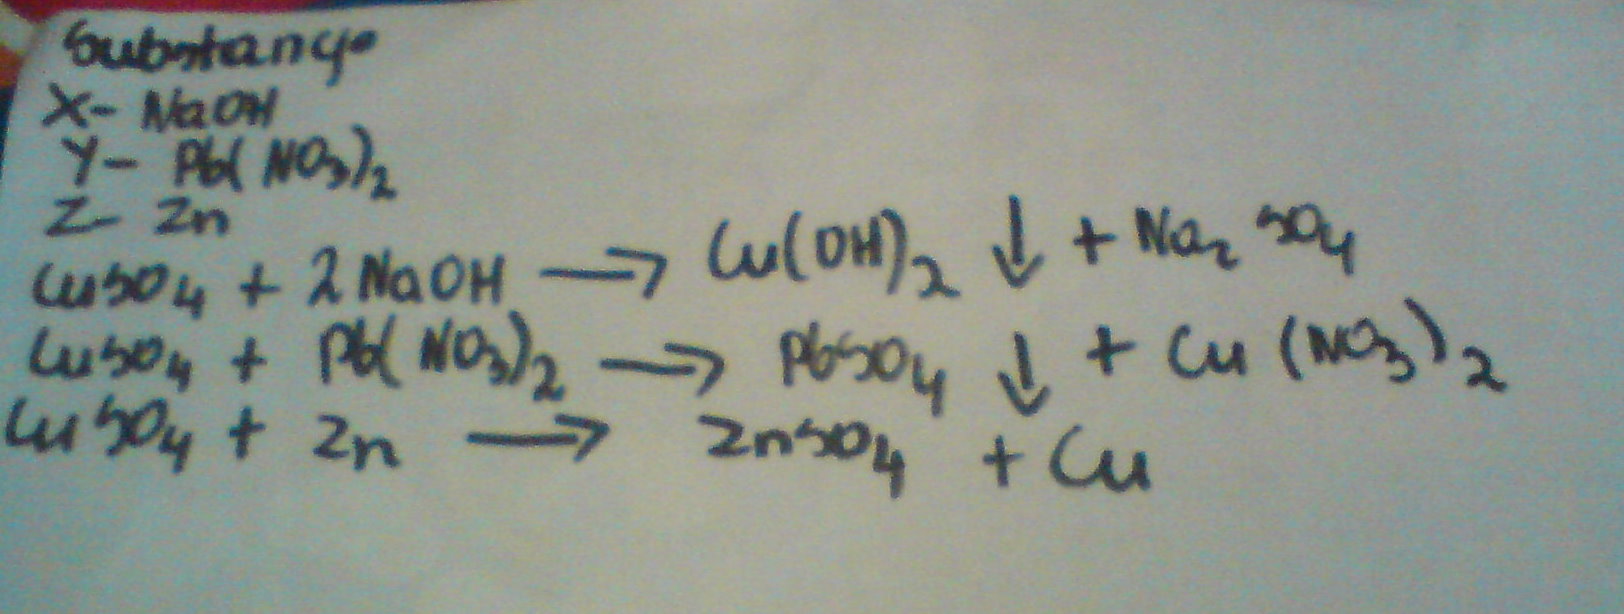 Substance
X- NaOH
Y- Pb(NO3)2
Z- Zn
CuSO4 + 2NaOH → Cu(OH)2 ↓ + Na2SO4
CuSO4 + Pb(NO3)2 → PbSO4 ↓ + Cu(NO3)2
CuSO4 + Zn → ZnSO4 + Cu